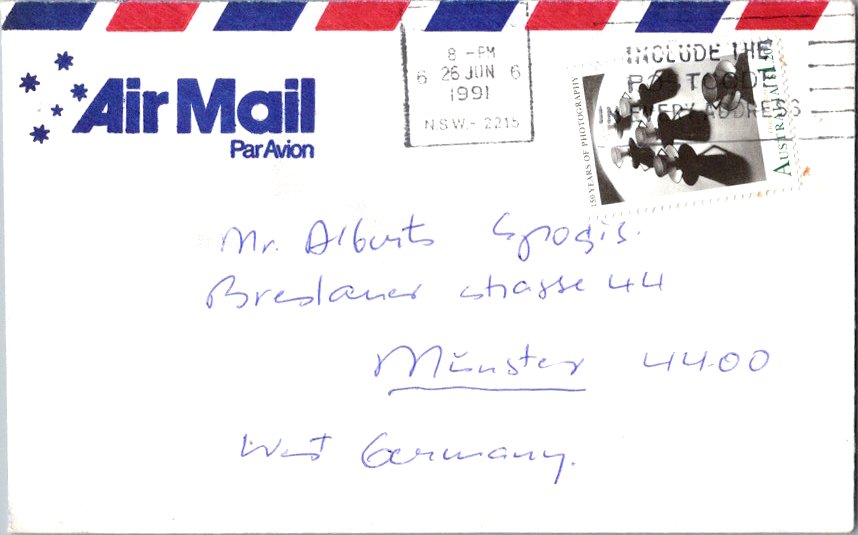 Air Mail
Par Avion
8 -PM
6 26 JUN 6
1991
N.S.W.- 2215
INCLUDE THE
POSTCODE
IN EVERY ADDRESS
150 YEARS OF PHOTOGRAPHY
AUSTRALIA
Mr. Alberts Sprogis.
Breslauer strasse 44
Münster 4400
West Germany.